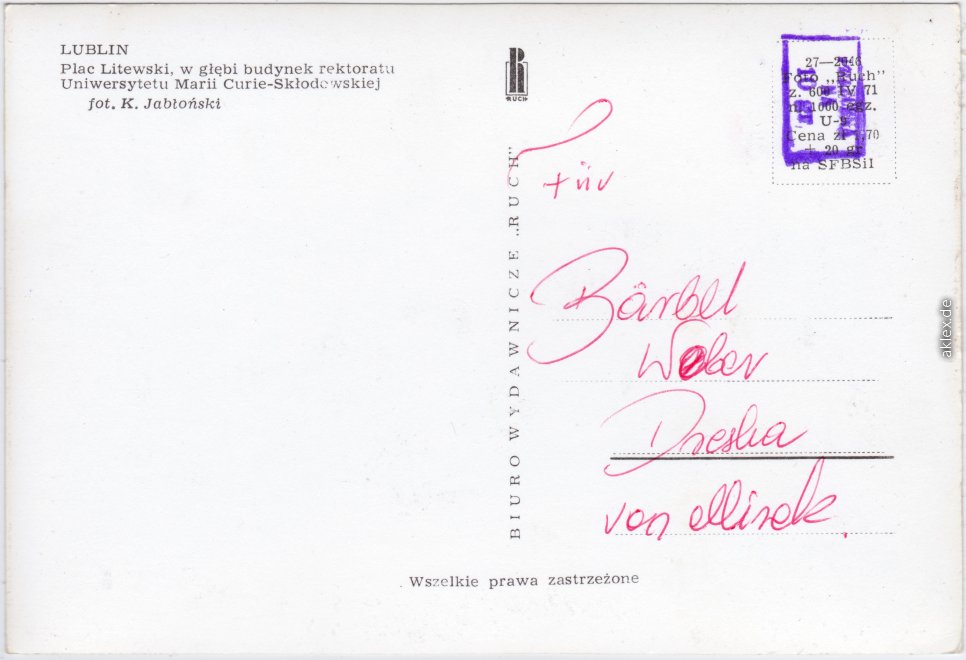 LUBLIN
Plac Litewski, w głębi budynek rektoratu
Uniwersytetu Marii Curie-Skłodowskiej
fot. K. Jabłoński
RUCH
BIURO WYDAWNICZE „RUCH"
27—2046
Foto „Ruch"
z. 600 IV 71
n. 1000 egz.
U-9
Cena zł 1,70
+ 20 gr
na SFBSiI
10 gr
Für
Bärbel
Weber
von Mirek.
Wszelkie prawa zastrzeżone
aklex.de